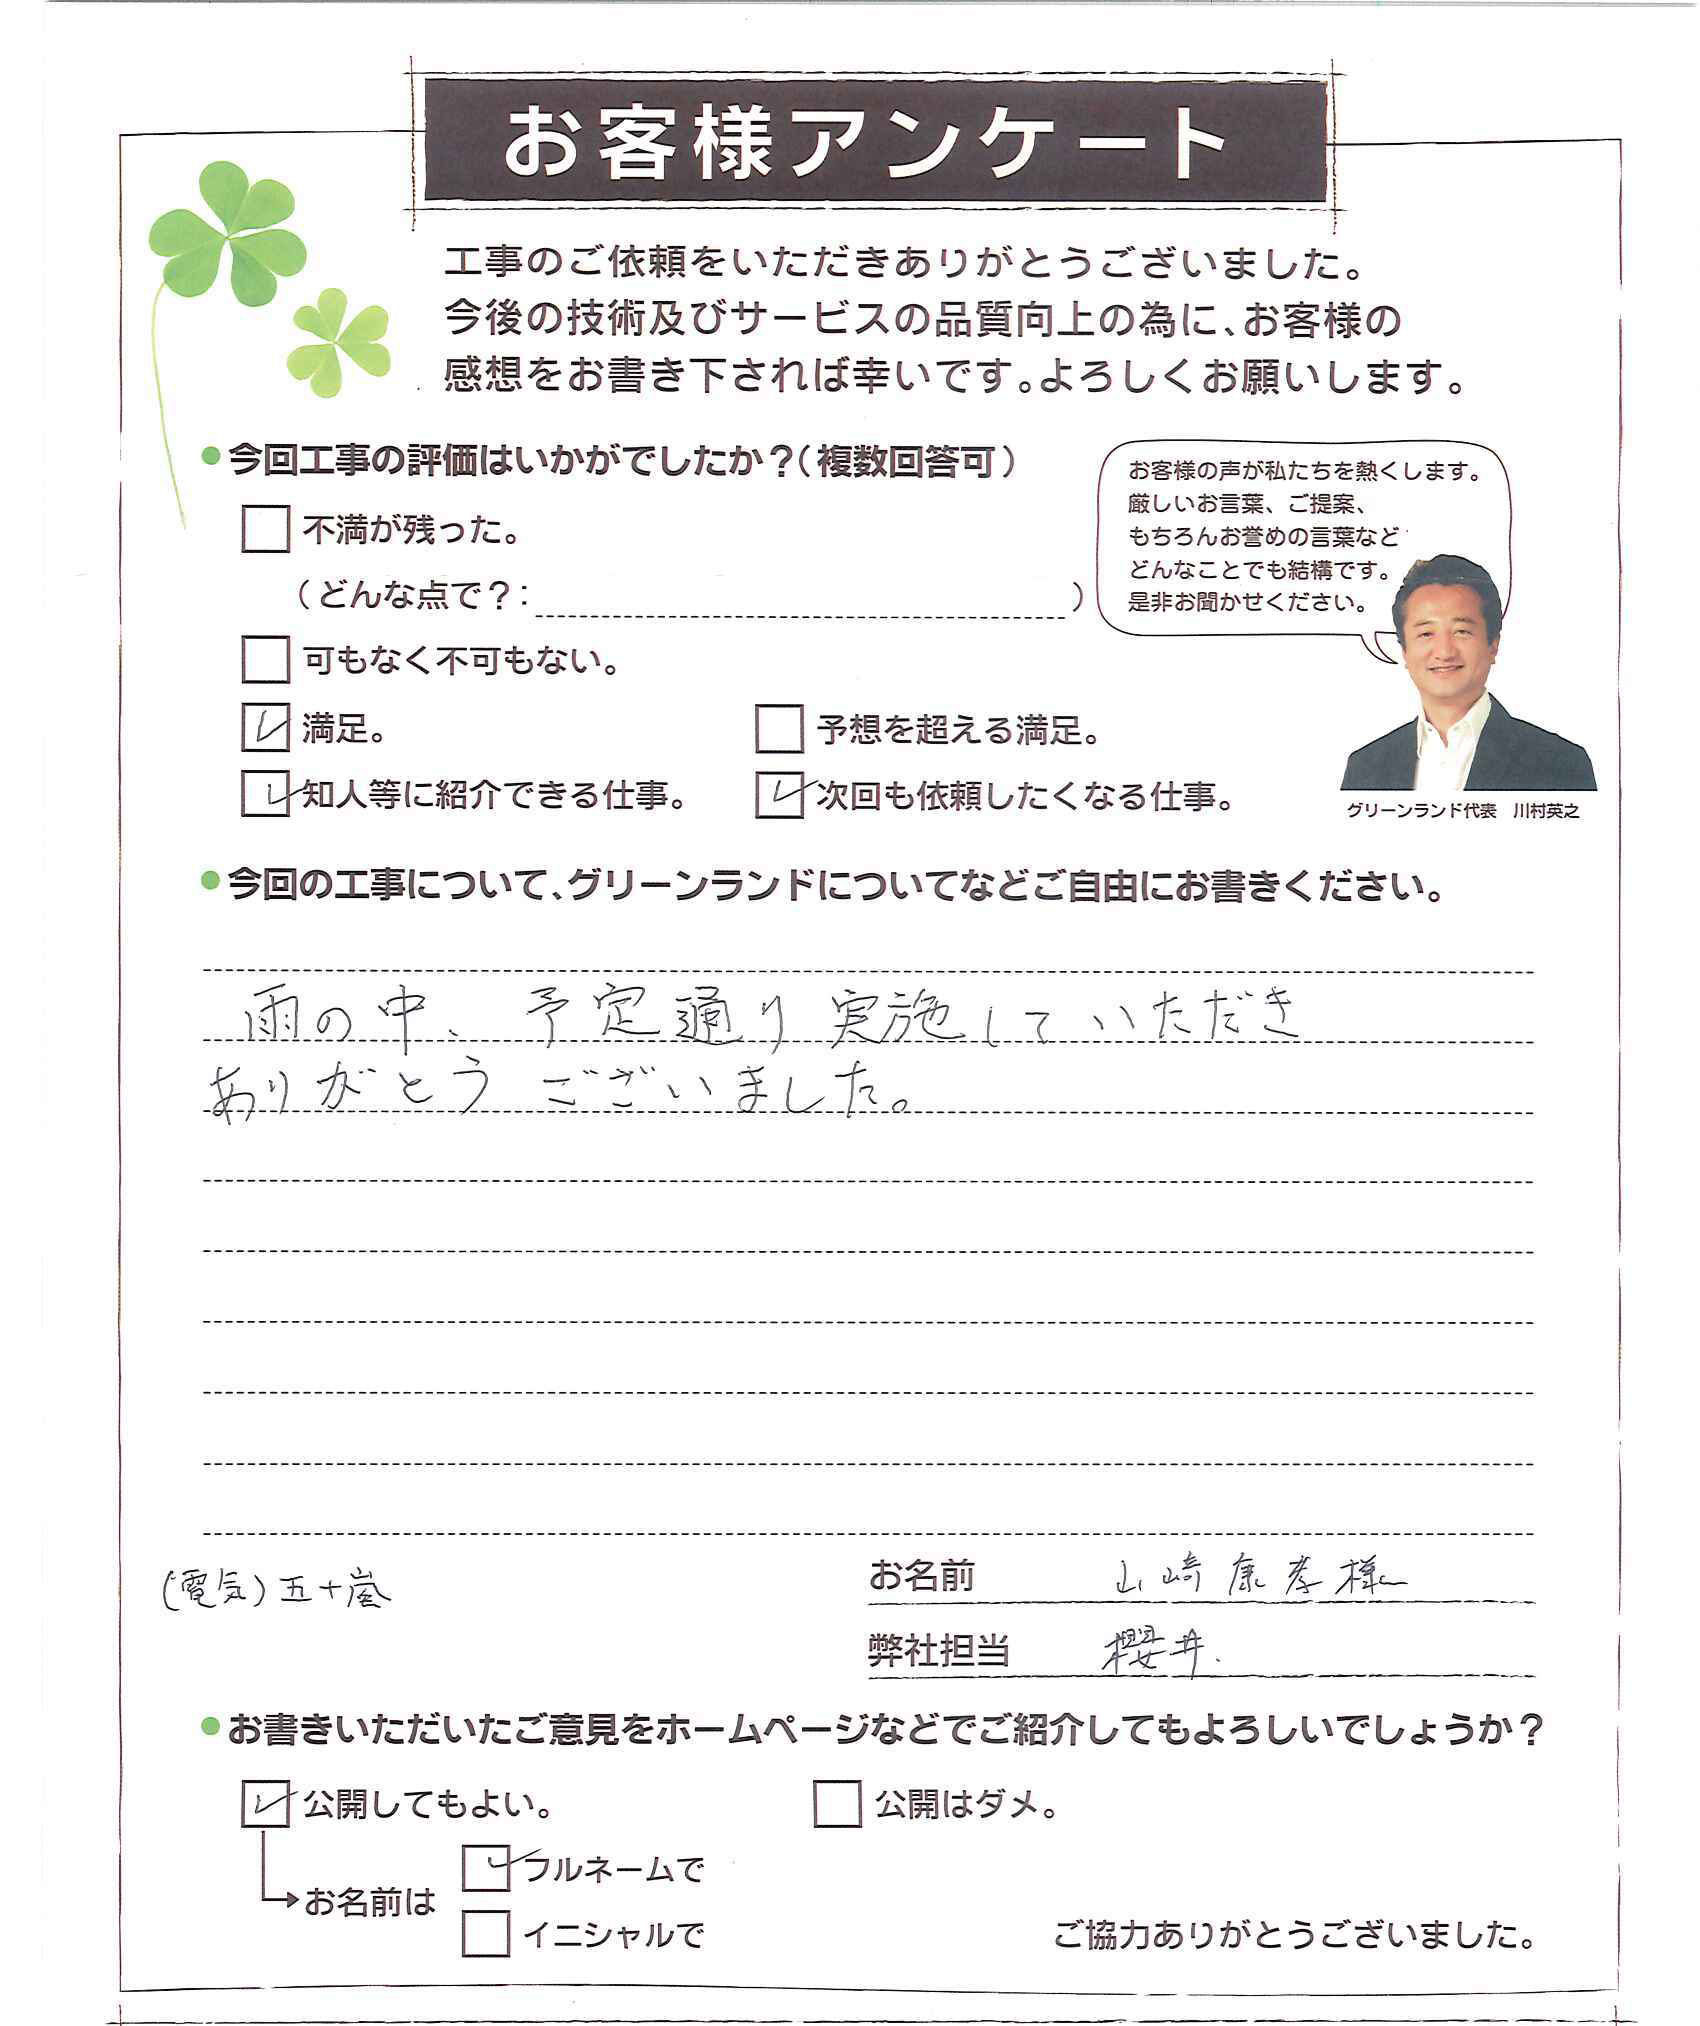 お客様アンケート
工事のご依頼をいただきありがとうございました。
今後の技術及びサービスの品質向上の為に、お客様の
感想をお書き下されば幸いです。よろしくお願いします。
今回工事の評価はいかがでしたか？（複数回答可）
不満が残った。
（どんな点で？：　）
可もなく不可もない。
満足。
予想を超える満足。
知人等に紹介できる仕事。
次回も依頼したくなる仕事。
お客様の声が私たちを熱くします。
厳しいお言葉、ご提案、
もちろんお誉めの言葉など
どんなことでも結構です。
是非お聞かせください。
グリーンランド代表　川村英之
今回の工事について、グリーンランドについてなどご自由にお書きください。
雨の中、予定通り実施していただき
ありがとうございました。
(電気)五十嵐
お名前　山﨑康孝様
弊社担当　櫻井.
お書きいただいたご意見をホームページなどでご紹介してもよろしいでしょうか？
公開してもよい。
公開はダメ。
お名前は
フルネームで
イニシャルで
ご協力ありがとうございました。